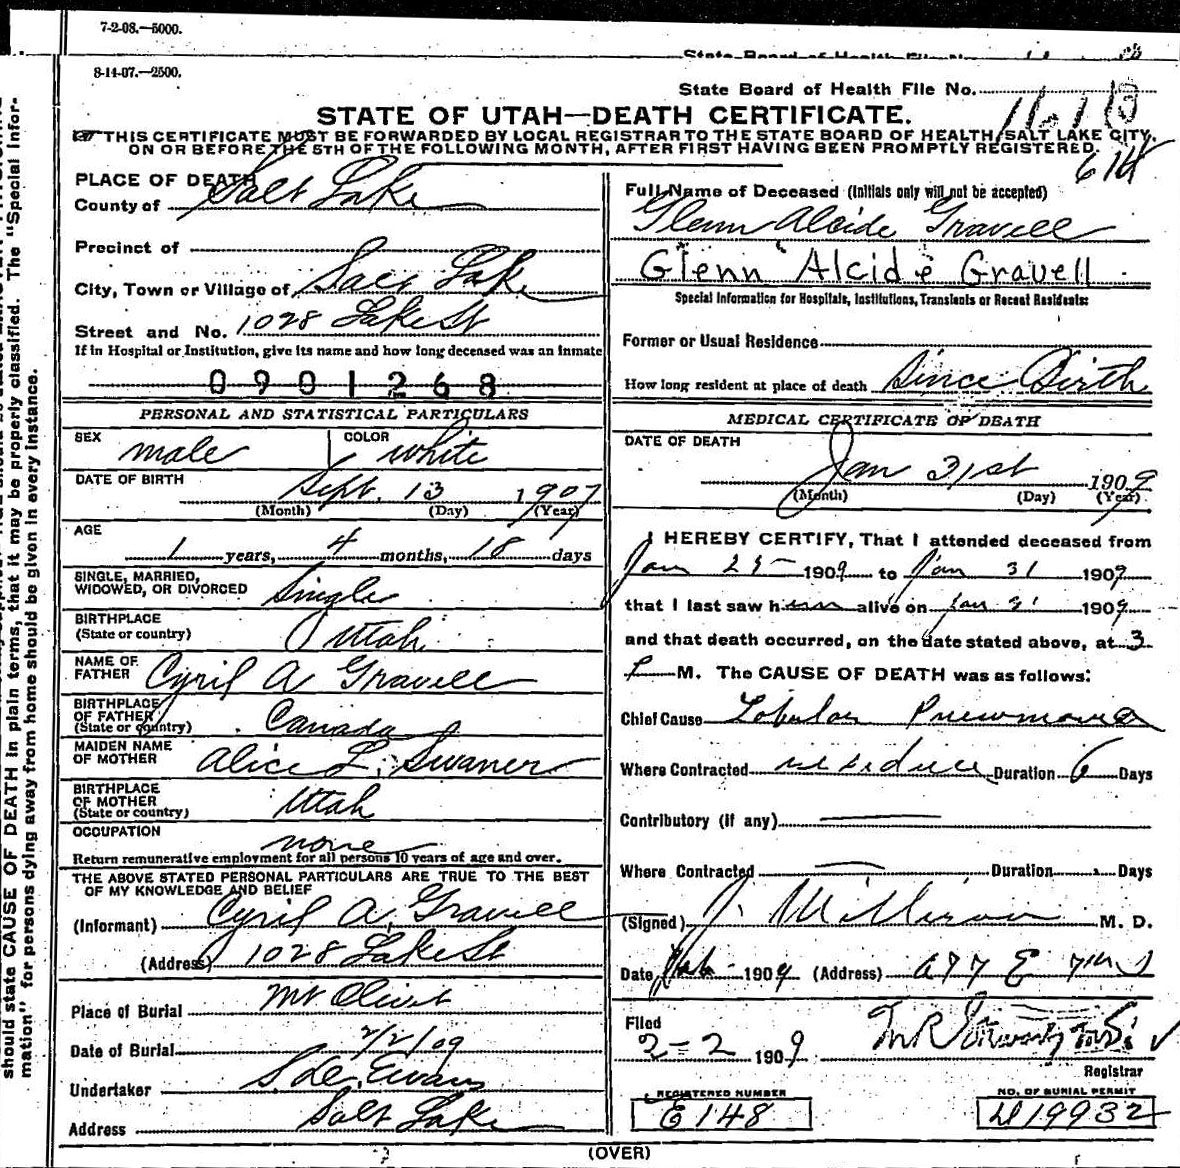 7-2-08.—5000.
8-14-07.—2500.
State Board of Health File No.
STATE OF UTAH—DEATH CERTIFICATE.
THIS CERTIFICATE MUST BE FORWARDED BY LOCAL REGISTRAR TO THE STATE BOARD OF HEALTH, SALT LAKE CITY,
ON OR BEFORE THE 5TH OF THE FOLLOWING MONTH, AFTER FIRST HAVING BEEN PROMPTLY REGISTERED.
614
PLACE OF DEATH
County of Salt Lake
Precinct of
City, Town or Village of Salt Lake
Street and No. 1028 Lake St
If in Hospital or Institution, give its name and how long deceased was an inmate
0901268
PERSONAL AND STATISTICAL PARTICULARS
SEX male COLOR white
DATE OF BIRTH
Sept. 13 1907
(Month) (Day) (Year)
AGE
1 years, 4 months, 18 days
SINGLE, MARRIED,
WIDOWED, OR DIVORCED Single
BIRTHPLACE
(State or country) Utah
NAME OF
FATHER Cyril A Gravell
BIRTHPLACE
OF FATHER
(State or country) Canada
MAIDEN NAME
OF MOTHER Alice L. Swaner
BIRTHPLACE
OF MOTHER
(State or country) Utah
OCCUPATION
none
Return remunerative employment for all persons 10 years of age and over.
THE ABOVE STATED PERSONAL PARTICULARS ARE TRUE TO THE BEST
OF MY KNOWLEDGE AND BELIEF
(Informant) Cyril A. Gravell
(Address) 1028 Lake St
Place of Burial Mt Olivet
Date of Burial 2/2/09
Undertaker Evans
Address Salt Lake
Full Name of Deceased (Initials only will not be accepted)
Glenn Alcide Gravell
Glenn Alcide Gravell
Special Information for Hospitals, Institutions, Transients or Recent Residents:
Former or Usual Residence
How long resident at place of death Since Birth
MEDICAL CERTIFICATE OF DEATH
DATE OF DEATH
Jan 31st 1909
(Month) (Day) (Year)
I HEREBY CERTIFY, That I attended deceased from
Jan 25 1909 to Jan 31 1909
that I last saw him alive on Jan 31 1909
and that death occurred, on the date stated above, at 3
P M. The CAUSE OF DEATH was as follows:
Chief Cause Lobular Pneumonia
Where Contracted residence Duration 6 Days
Contributory (if any)
Where Contracted Duration Days
(Signed) J. M. D.
Date 1909 (Address) E
Filed
2-2 1909
Registrar
REGISTERED NUMBER
E 148
NO. OF BURIAL PERMIT
19932
(OVER)
should state CAUSE OF DEATH in plain terms, that it may be properly classified. The "Special Infor-
mation" for persons dying away from home should be given in every instance.